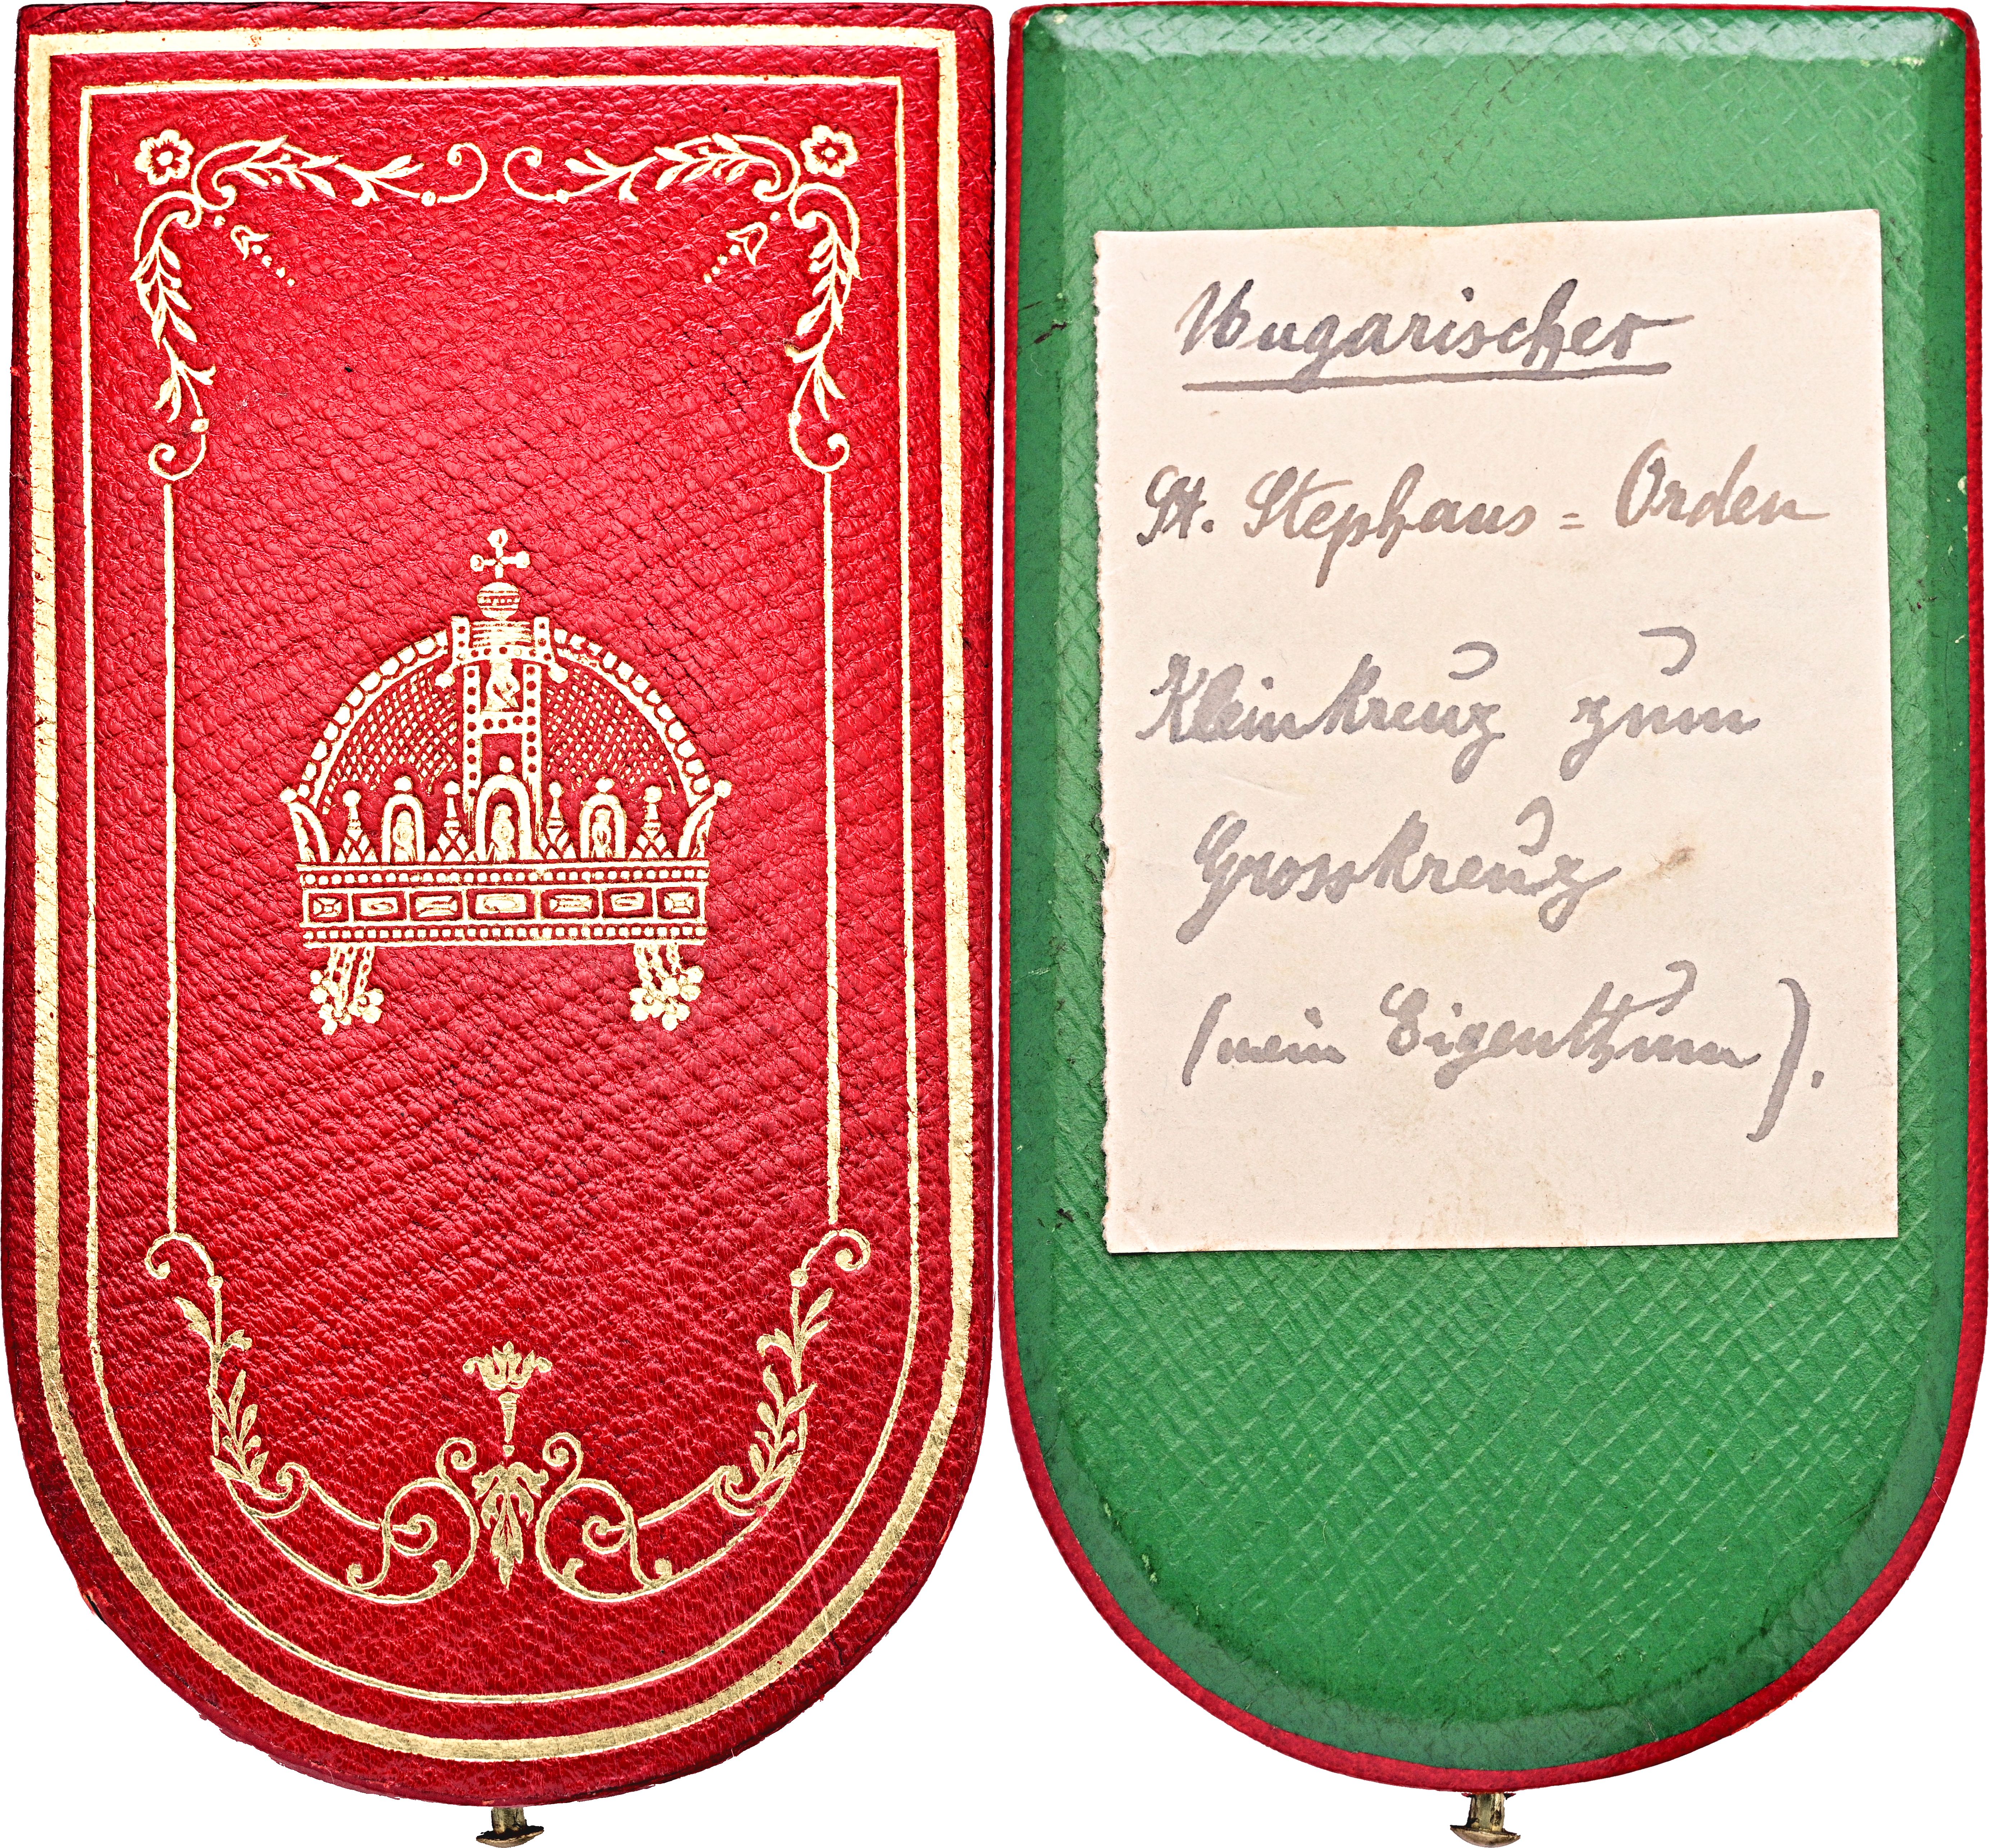 Ungarischer
St. Stephans = Orden
Kleinkreuz zum
Grosskreuz
(mein Eigenthum).